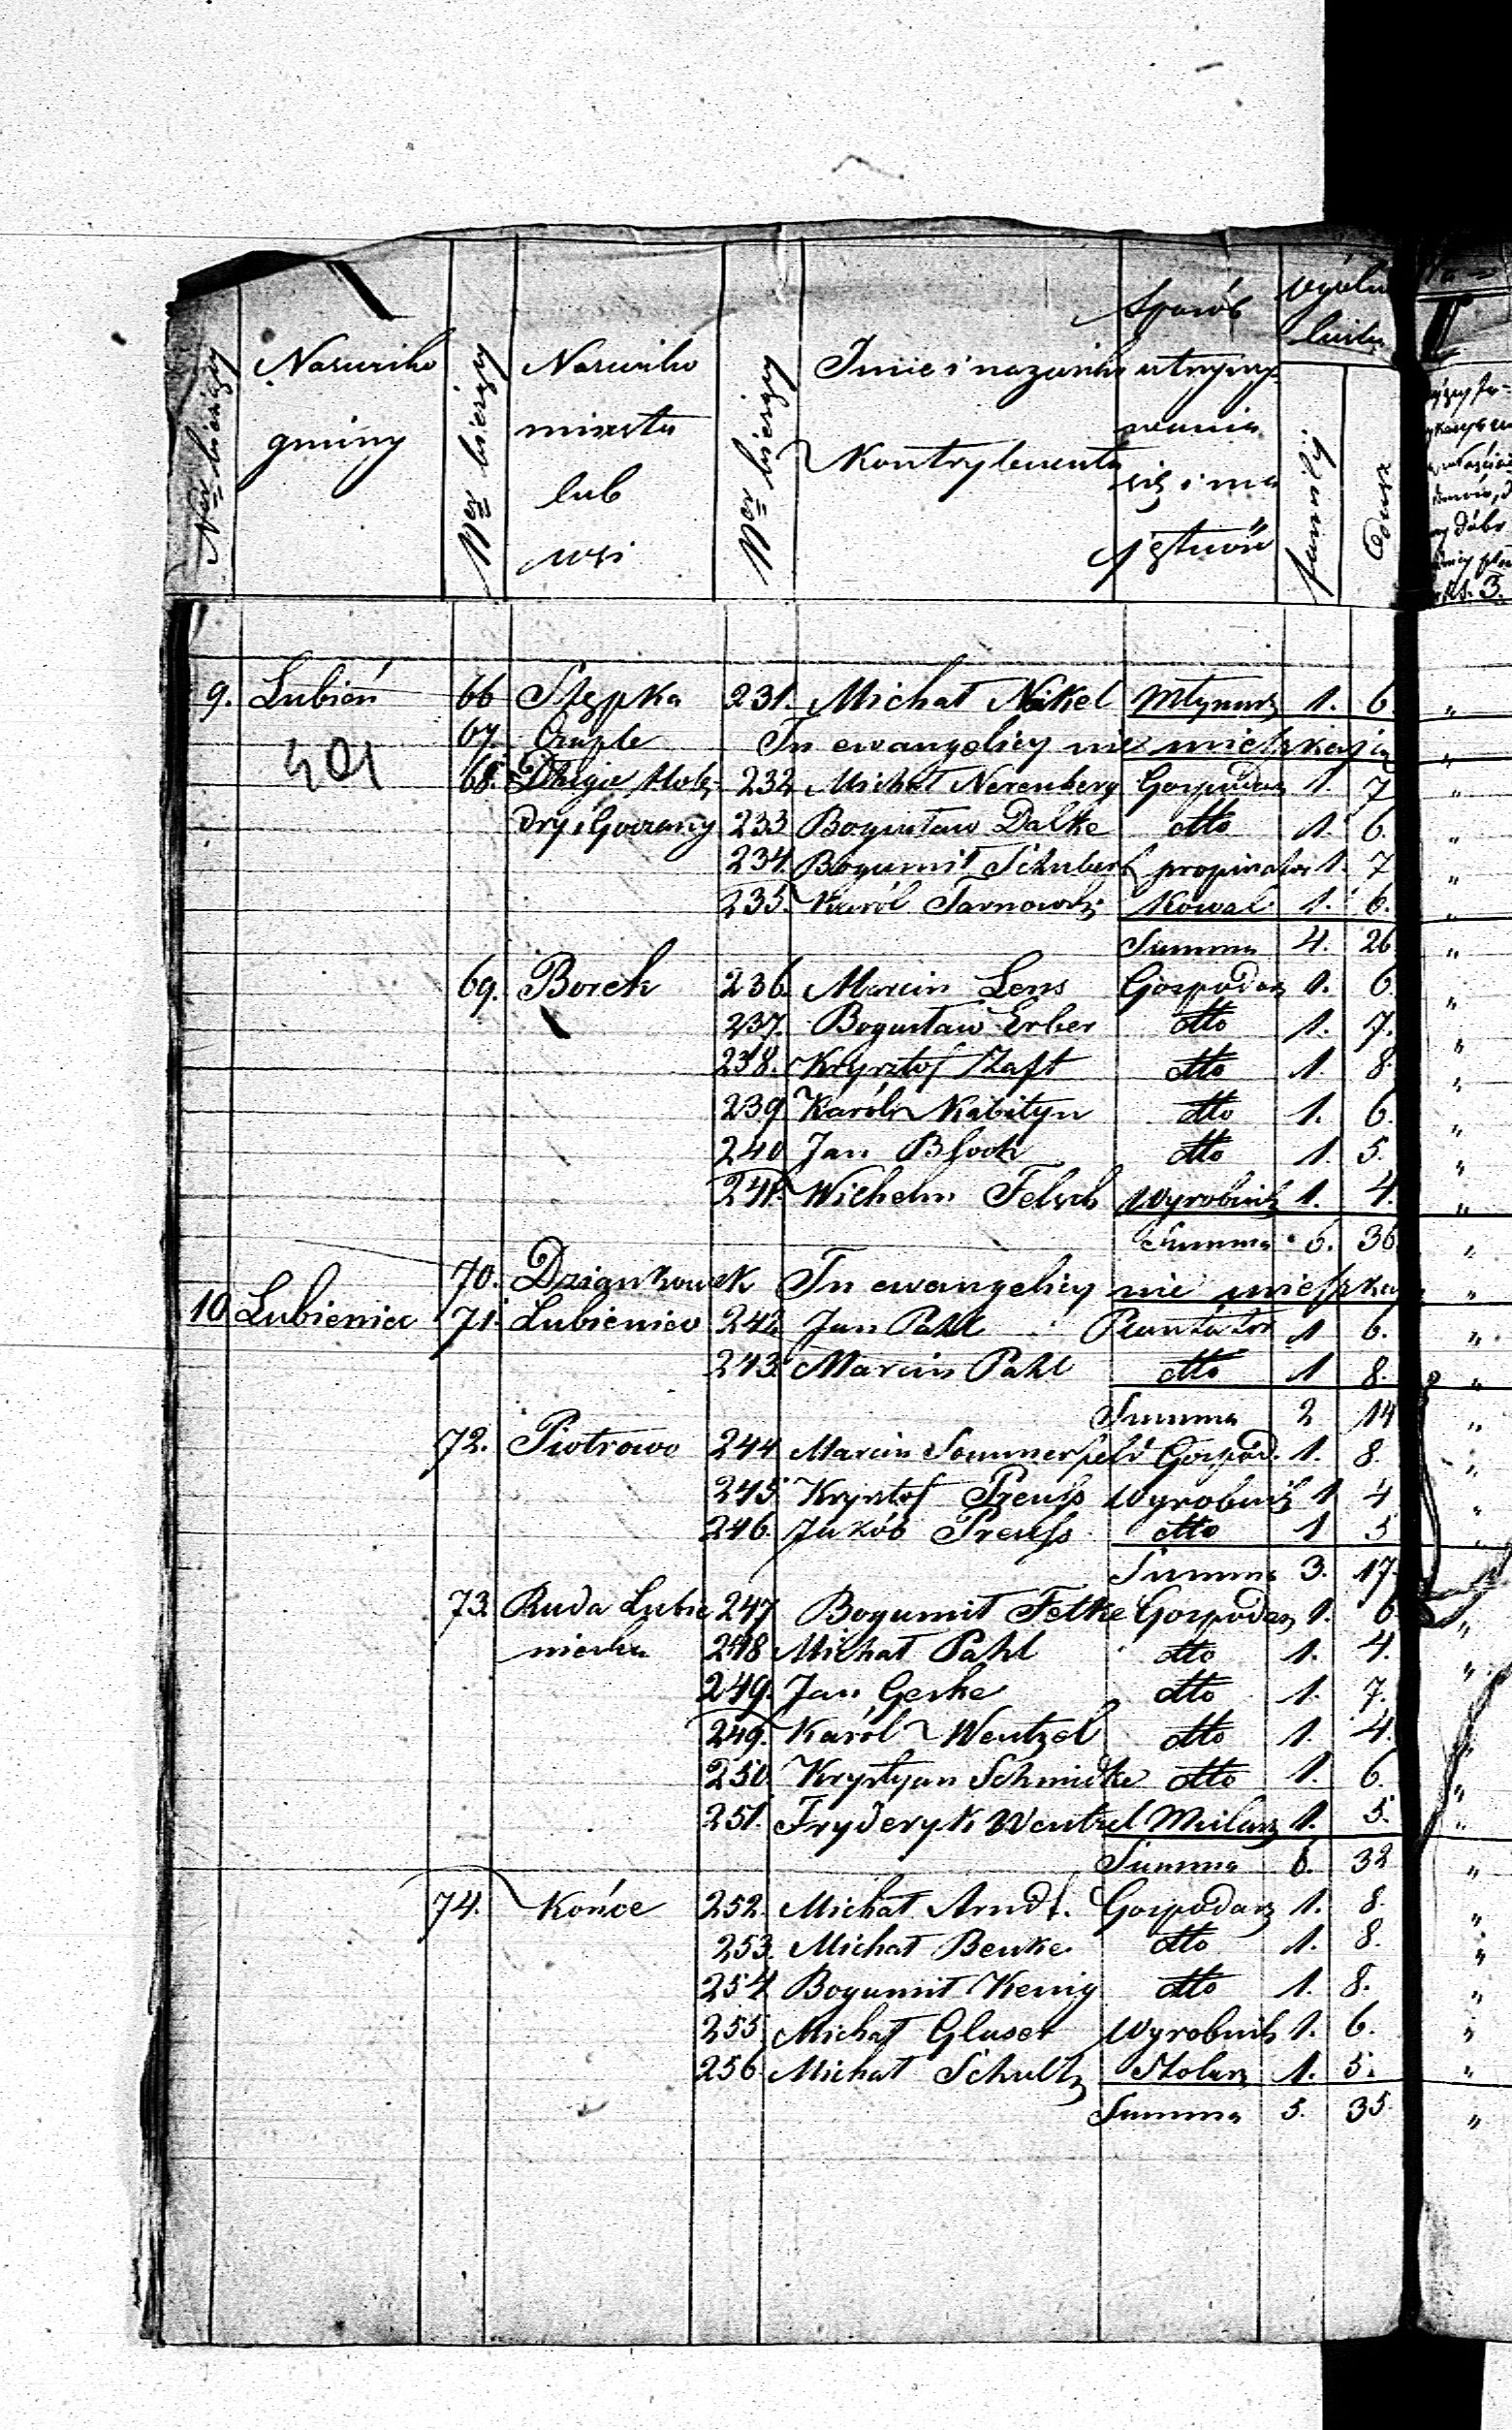 Ner bieżący
Nazwisko gminy
Ner bieżący
Nazwisko miasta lub wsi
Ner bieżący
Imie i nazwisko Kontrybuenta
Sposób utrzymywania się i
familij
Dusz
9. Lubień 66 Stępka 231. Michał Nikel Młynarz 1. 6. "
401 67. Tu ewangelicy nie mieszkają "
68. Długie Holę- 232 Michał Nerenberg Gospodarz 1. 7 "
dry i 233 Bogusław Dalke dtto 1. 6. "
234. Bogumił Schubert propinator 1. 7 "
235. Karól Tarnowski Kowal 1. 6. "
Summa 4. 26 "
69. Borek 236. Marcin Lens Gospodarz 1. 6. "
237. Bogusław Erber dtto 1. 7. "
238. Krysztof Zaft dtto 1. 8. "
239 Karól Nabityn dtto 1. 6. "
240 Jan Block dtto 1. 5. "
241. Wilhelm Felsch Wyrobnik 1. 4. "
Summa 6. 36 "
70. Dziankowek Tu ewangelicy nie "
10. Lubieniec 71. Lubieniec 242 Jan Pahl Plantator 1 6. "
243. Marcin Pahl dtto 1 8. "
Summa 2 14 "
72. Piotrowo 244 Marcin Sommerfeld Gospod. 1. 8. "
245 Krysztof Preuſs Wyrobnik 1 4 "
246. Jakób Preuſs dtto 1 5 "
Summa 3. 17. "
73. Ruda Lubie 247 Bogumił Fetke Gospodarz 1. 6 "
niecka 248 Michał Pahl dtto 1. 4. "
249. Jan Geske dtto 1. 7. "
249. Karól Wentzel dtto 1. 4. "
250 Krystyan Schmidke dtto 1. 6. "
251. Fryderyk Wentzel 1. 5. "
Summa 6. 32 "
74. Końce 252. Michał Arndt. Gospodarz 1. 8. "
253. Michał Benke dtto 1. 8. "
254 Bogumił Kenig dtto 1. 8. "
255. Michał Glaser Wyrobnik 1. 6. "
256. Michał Schultz Stolarz 1. 5. "
Summa 5. 35. "